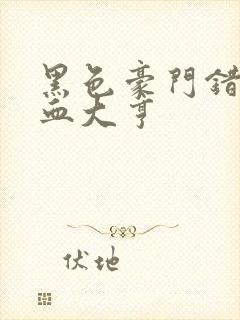 黑色豪門錯
血大亨
伏地